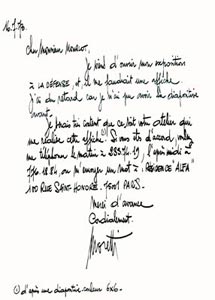 16.7.76.
Cher Monsieur Mourlot.
Je viens d'ouvrir mon exposition
à LA DÉFENSE, et, il me faudrait une affiche
j'ai du retard car je n'ai que voir la diapositive
avant.
Je serais très content que ce soit votre atelier qui
me réalise cette affiche(1). Si vous êtes d'accord, voulez
me téléphoner le matin à 235.76.19, l'après midi à
776.18.84, ou m'envoyer un mot à : RÉSIDENCE "ALFA"
100 RUE SAINT HONORÉ. 75001 PARIS.
Merci d'avance
Cordialement.
Moretti
(1) d'après une diapositive couleur 6x6.